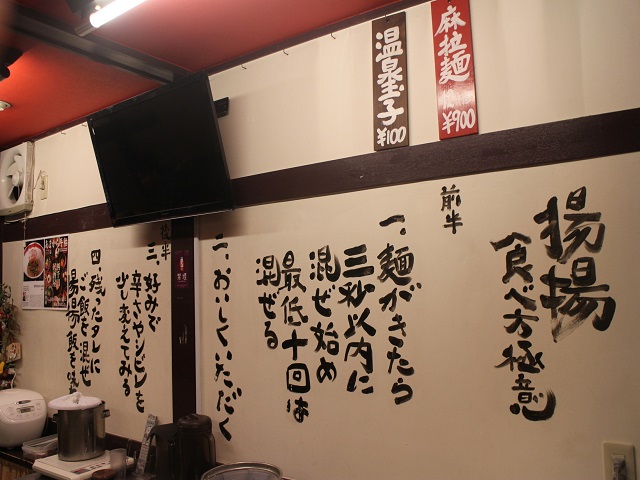 麻拉麺
¥900
温泉玉子
¥100
揚揚
食べ方極意
前半
一、麺がきたら
三秒以内に
混ぜ始め
最低十回は
混ぜる
二、おいしくいただく
後半
三、好みで
辛さやシビレを
少し変えてみる
四、残ったタレに
ご飯を混ぜ
揚揚飯を